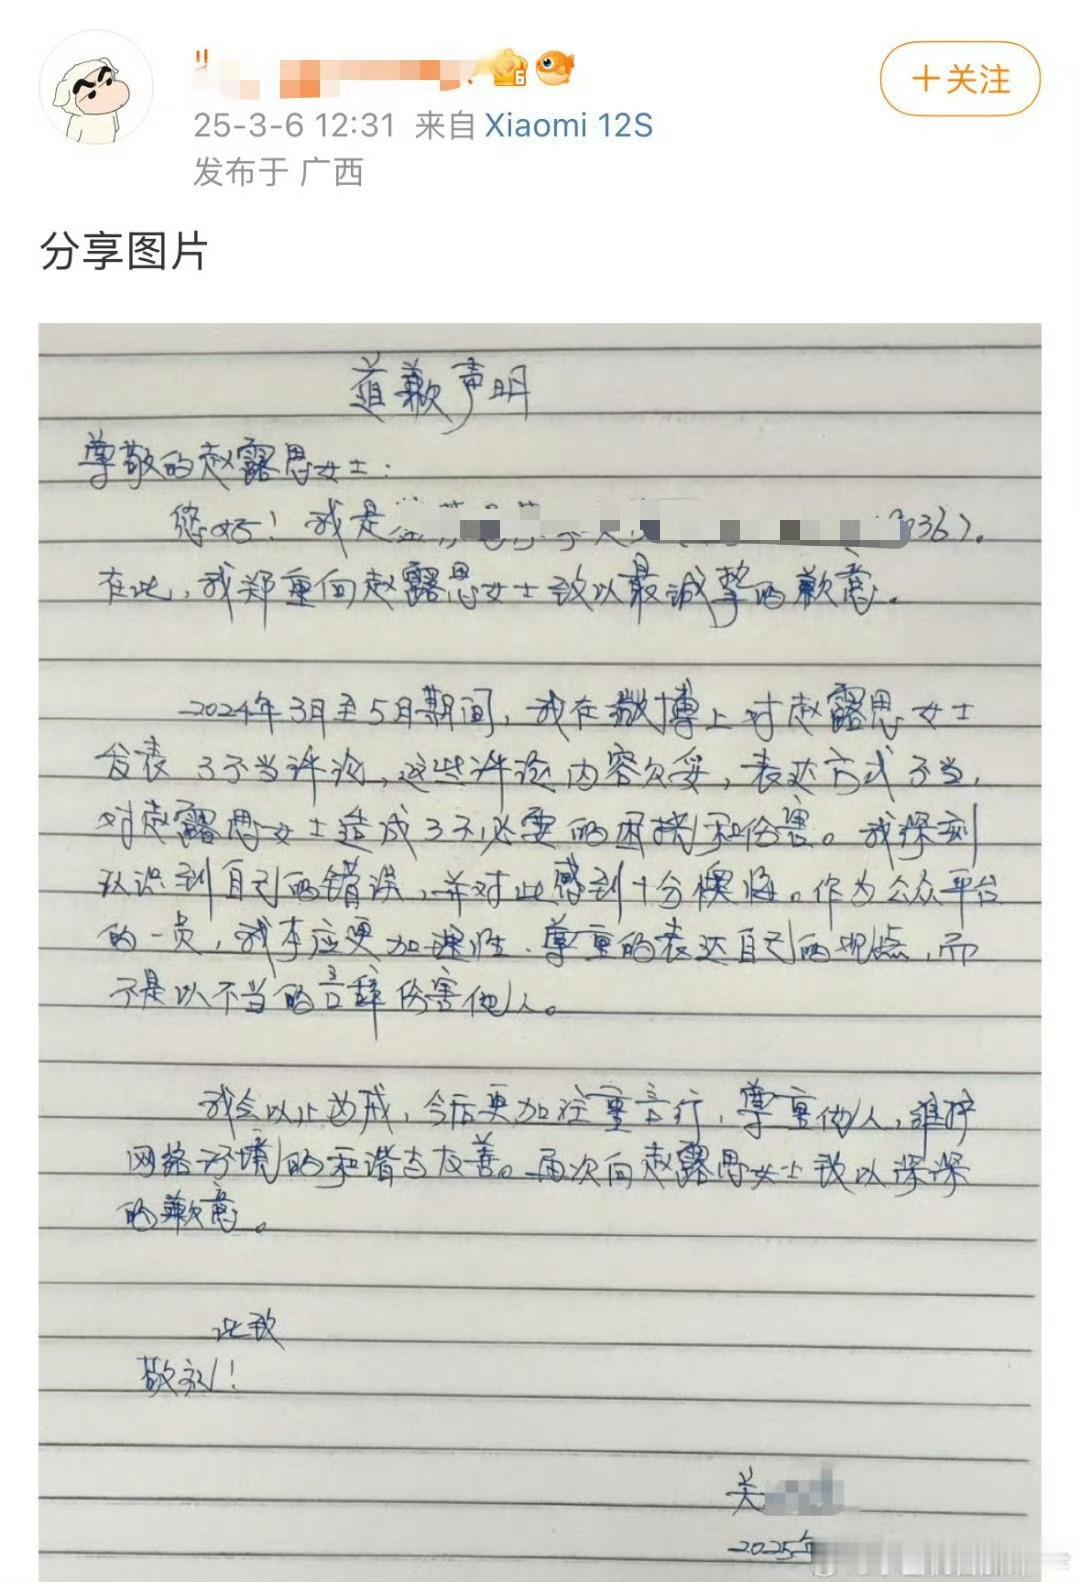 +关注
25-3-6 12:31 来自 Xiaomi 12S
发布于 广西
分享图片
道歉声明
尊敬的赵露思女士：
您好！我是
036）。
在此，我郑重向赵露思女士致以最诚挚的歉意。
2024年3月至5月期间，我在微博上对赵露思女士
发表了不当评论，这些评论内容欠妥，表达方式不当，
对赵露思女士造成了不必要的困扰和伤害。我深刻
认识到自己的错误，并对此感到十分懊悔。作为公众平台
的一员，我本应更加理性、尊重的表达自己的观点，而
不是以不当的言辞伤害他人。
我会以此为戒，今后更加注重言行，尊重他人，维护
网络环境的和谐与友善。再次向赵露思女士致以深深
的歉意。
此致
敬礼！
关
2025年